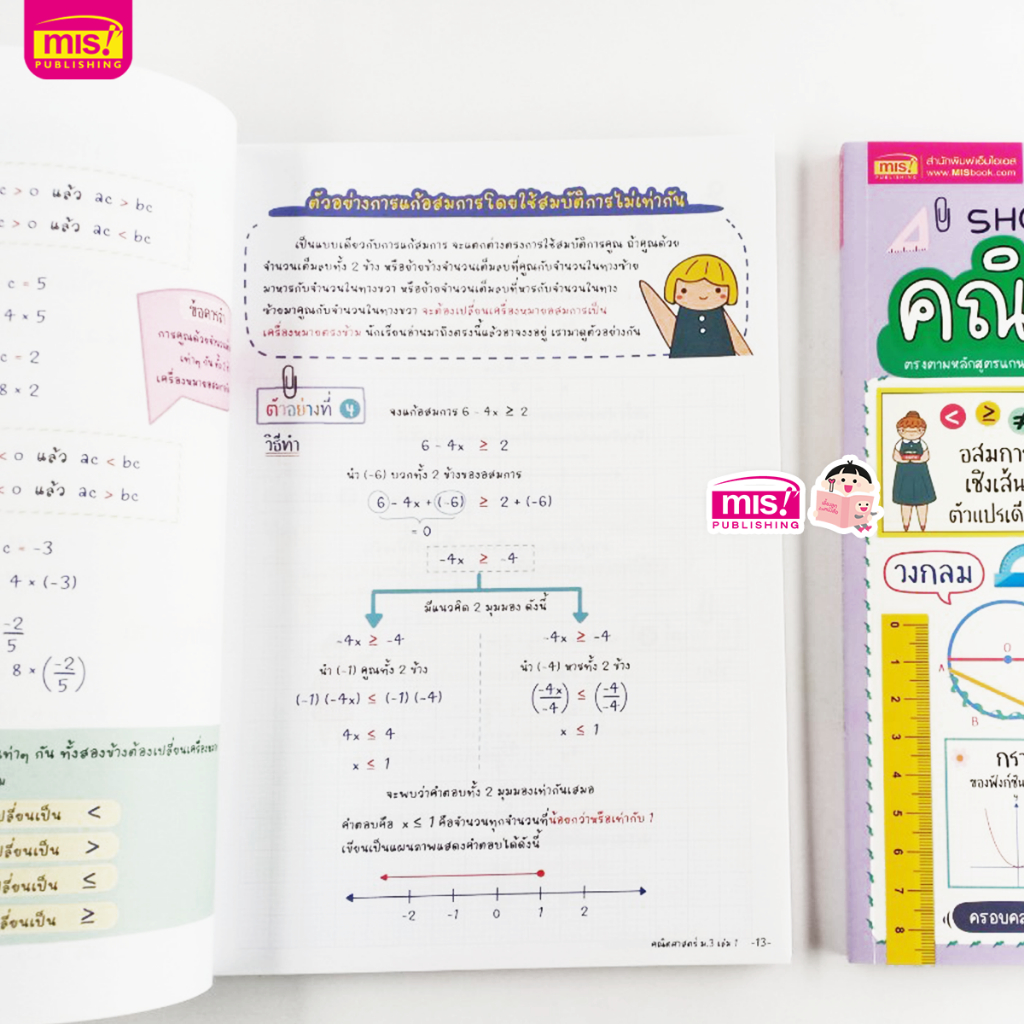 mis!
PUBLISHING
c > 0 แล้ว ac > bc
c > 0 แล้ว ac < bc
c = 5
4 × 5
c = 2
8 × 2
การคูณด้วย
เท่าๆ กัน
เครื่องหมาย
< 0 แล้ว ac < bc
< 0 แล้ว ac > bc
c = -3
4 × (-3)
-2
5
8 × (-2/5)
เท่าๆ กัน ทั้งสองข้างต้องเปลี่ยนเครื่องหมาย
ปลี่ยนเป็น <
ปลี่ยนเป็น >
ปลี่ยนเป็น ≤
ปลี่ยนเป็น ≥
ตัวอย่างการแก้อสมการโดยใช้สมบัติการไม่เท่ากัน
เป็นแบบเดียวกับการแก้สมการ จะแตกต่างตรงการใช้สมบัติการคูณ ถ้าคูณด้วย
จำนวนเต็มลบทั้ง 2 ข้าง หรือย้ายข้างจำนวนเต็มลบที่คูณกับจำนวนในทางซ้าย
มาหารกับจำนวนในทางขวา หรือย้ายจำนวนเต็มลบที่หารกับจำนวนในทาง
ซ้ายมาคูณกับจำนวนในทางขวา จะต้องเปลี่ยนเครื่องหมายอสมการเป็น
เครื่องหมายตรงข้าม นักเรียนอ่านมาถึงตรงนี้แล้วอาจงงอยู่ เรามาดูตัวอย่างกัน
ตัวอย่างที่ 4 จงแก้อสมการ 6 - 4x ≥ 2
วิธีทำ 6 - 4x ≥ 2
นำ (-6) บวกทั้ง 2 ข้างของอสมการ
6 - 4x + (-6) ≥ 2 + (-6)
= 0
-4x ≥ -4
มีแนวคิด 2 มุมมอง ดังนี้
-4x ≥ -4 -4x ≥ -4
นำ (-1) คูณทั้ง 2 ข้าง นำ (-4) หารทั้ง 2 ข้าง
(-1) (-4x) ≤ (-1) (-4) (-4x/-4) ≤ (-4/-4)
4x ≤ 4 x ≤ 1
x ≤ 1
จะพบว่าคำตอบทั้ง 2 มุมมองเท่ากันเสมอ
คำตอบคือ x ≤ 1 คือจำนวนทุกจำนวนที่น้อยกว่าหรือเท่ากับ 1
เขียนเป็นแผนภาพแสดงคำตอบได้ดังนี้
-2 -1 0 1 2
คณิตศาสตร์ ม.3 เล่ม 1 -13-
mis!
PUBLISHING
mis!
PUBLISHING
สำนักพิมพ์เอ็มไอเอส
www.MISbook.com
SHO
คณิ
ตรงตามหลักสูตรแกน
< ≥ ≠
อสมการ
เชิงเส้น
ตัวแปรเดี
วงกลม
0
1
2
3
4
5
6
7
8
O
A
B
กรา
ของฟังก์ชัน
ครอบคล